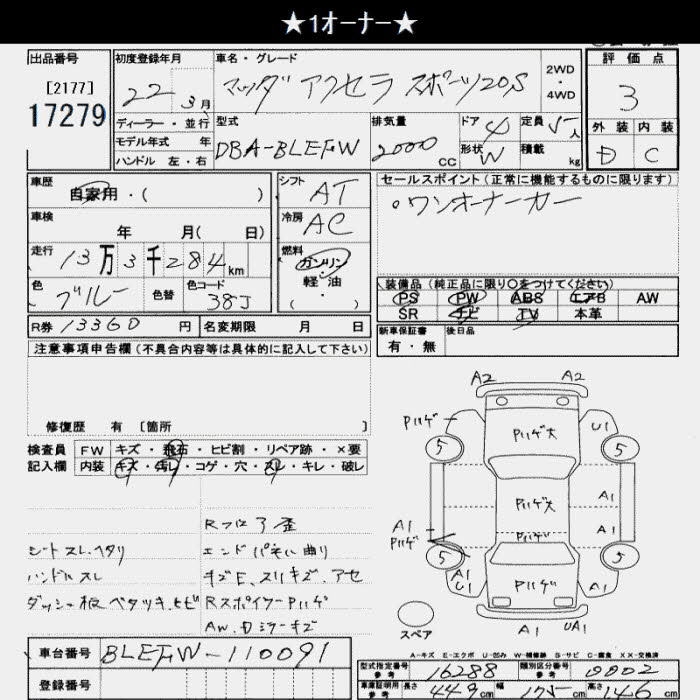 ★1オーナー★
出品番号 初度登録年月 車名・グレード 評価点
[2177] 22年 3月 マツダ アクセラ スポーツ20S 2WD・4WD 3
17279
ディーラー・並行 型式 排気量 ドア 4 定員 5人 外装 内装
モデル年式 年 DBA-BLEFW 2000cc 形状 W 積載 kg D C
ハンドル 左・右
車歴 自家用・( ) シフト AT セールスポイント(正常に機能するものに限ります)
車検 年 月( 日) 冷房 AC ○ワンオーナーカー
走行 13万3千284km 燃料 ガソリン 軽・油 ・( )
色 ブルー 色替 色コード 38J 装備品(純正品に限り○をつけてください)
PS PW ABS エアB AW
SR ナビ TV 本革
R券 13360円 名変期限 月 日 新車保証書 有・無 後日品
注意事項申告欄(不具合内容等は具体的に記入して下さい)
修復歴 有 [箇所
検査員 FW キズ・飛石・ヒビ割・リペア跡・×要
記入欄 内装 キズ・汚レ・コゲ・穴・スレ・キレ・破レ
A2 A2
Pハゲ Pハゲ大 U1
5 5
Pハゲ大 A1
A1 Pハゲ A1
Pハゲ
5 5
A1 U Pハゲ A1
A1 UA1
スペア
シートスレ.ヘタリ エンドパネル曲り
ハンドルスレ キズE.スリキズ.アセ
ダッシュ板ベタツキ.ヒビ RスポイラーPハゲ
AW.Dミラーキズ
A-キズ E-エクボ U-凹み W-補修跡 S-サビ C-腐食 XX-交換済
車台番号 BLEFW-110091 型式指定番号 参考 16288 類別区分番号 参考 0002
登録番号 車庫証明用 参考 長さ 449cm 幅 175cm 高さ 146cm